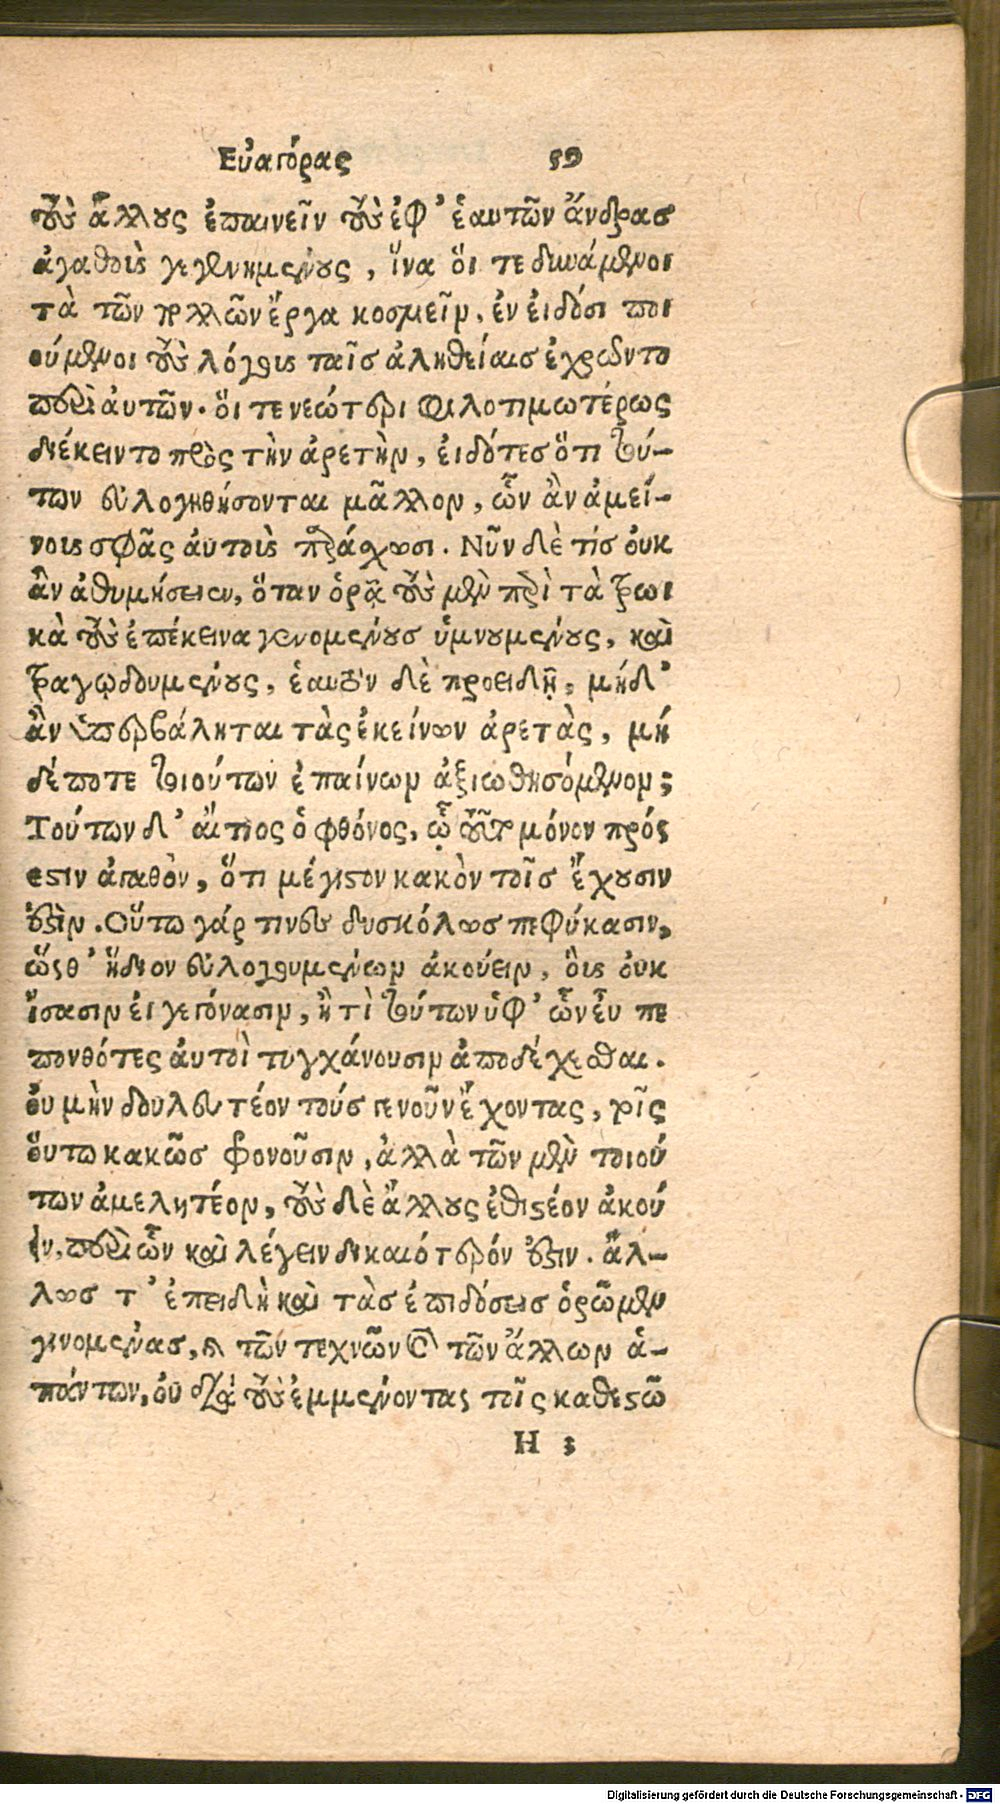 Εὐαγόρας 59
τοὺς ἄλλους ἐπαινεῖν τοὺς ἐφ' ἑαυτῶν ἄνδρας
ἀγαθοὺς γεγενημένους, ἵνα ὅι τε δυνάμενοι
τὰ τῶν ἄλλων ἔργα κοσμεῖν, ἐν ἐιδόσι ποι
ούμενοι τοὺς λόγους ταῖς ἀληθείαις ἐχρῶντο
περὶ ἀυτῶν. ὅι τε νεώτεροι φιλοτιμωτέρως
διέκειντο πρὸς τὴν ἀρετὴν, ἐιδότες ὅτι τού-
των εὐλογηθήσονται μᾶλλον, ὧν ἂν ἀμεί-
νους σφᾶς ἀυτοὺς παράσχωσι. Νῦν δὲ τίς ὀυκ
ἂν ἀθυμήσειεν, ὅταν ὁρᾷ τοὺς μὲν περὶ τὰ τρωι
κὰ τοὺς ἐπέκεινα γενομένους ὑμνουμένους, καὶ
τραγῳδουμένους, ἑαυτὸν δὲ προειδῇ, μήδ'
ἂν ὑπερβάληται τὰς ἐκείνων ἀρετὰς, μή
δέποτε τοιούτων ἐπαίνων ἀξιωθησόμενον;
Τούτων δ' ἄιτιος ὁ φθόνος, ᾧ τοῦτο μόνον πρός
εστιν ἀγαθὸν, ὅτι μέγιστον κακὸν τοῖς ἔχουσιν
ἐστὶν. Οὕτω γάρ τινες δυσκόλως πεφύκασιν,
ὥςθ' ἥδιον εὐλογουμένων ἀκούειν, ὃυς ὀυκ
ἴσασιν ἐι γεγόνασιν, ἢ τὶ τούτων ὑφ' ὧν εὖ πε
πονθότες ἀυτοὶ τυγχάνουσιν ἀποδέχεσθαι.
ὀυ μὴν δουλευτέον τούς γε νοῦν ἔχοντας, τοῖς
ὅυτω κακῶς φρονοῦσιν, ἀλλὰ τῶν μὲν τοιού
των ἀμελητέον, τοὺς δὲ ἄλλους ἐθιστέον ἀκού
ειν, περὶ ὧν καὶ λέγειν δικαιότερόν ἐστιν. ἄλ-
λως τ' ἐπειδὴ καὶ τὰς ἐπιδόσεις ὁρῶμεν
γινομένας, καὶ τῶν τεχνῶν καὶ τῶν ἄλλων ἁ-
πάντων, ὀυ διὰ τοὺς ἐμμένοντας τοῖς καθεστῶ
H 3
Digitalisierung gefördert durch die Deutsche Forschungsgemeinschaft - DFG